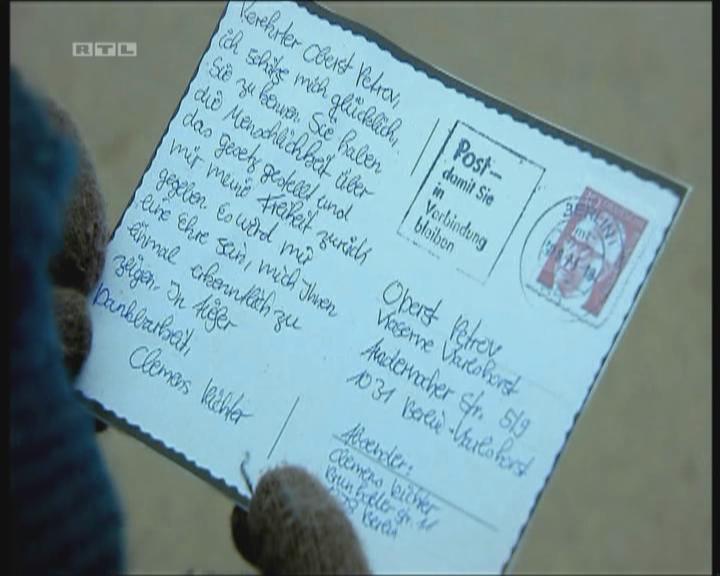 RTL
Verehrter Oberst Petrov,
ich schätze mich glücklich,
Sie zu kennen. Sie haben
die Menschlichkeit über
das Gesetz gestellt und
mir meine Freiheit zurück
gegeben. Es wird mir
eine Ehre sein, mich Ihnen
einmal erkenntlich zu
zeigen. In tiefer
Dankbarkeit,
Clemens Richter
Post-
damit Sie
in
Verbindung
bleiben
BERLIN
Oberst Petrov
Kaserne Karlshorst
Andernacher Str. 5/9
1031 Berlin-Karlshorst
Absender:
Clemens Richter
Str. 11
Berlin